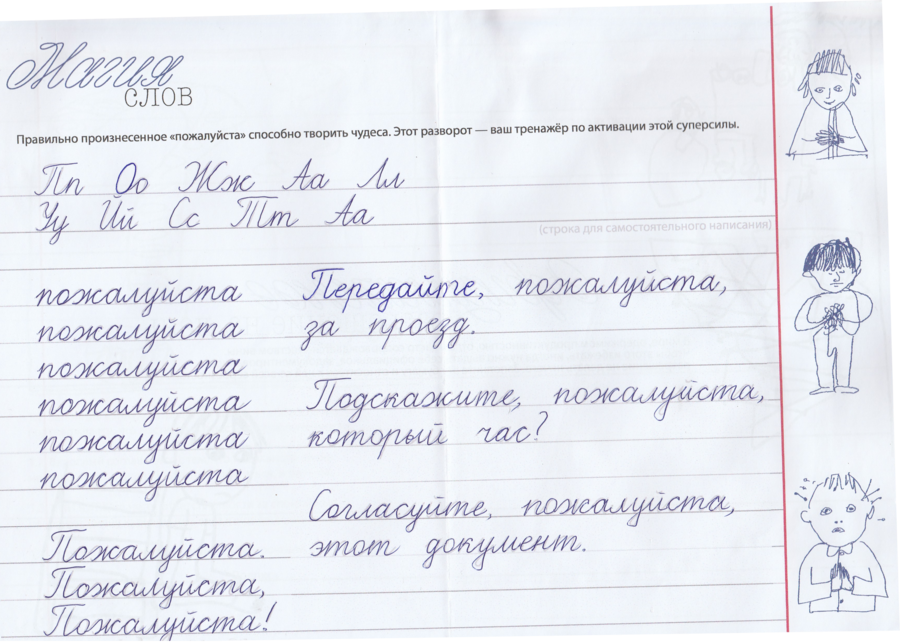 Магия
СЛОВ
Правильно произнесенное «пожалуйста» способно творить чудеса. Этот разворот — ваш тренажёр по активации этой суперсилы.
Пп Оо Жж Аа Лл
Уу Йй Сс Тт Аа
(строка для самостоятельного написания)
пожалуйста
пожалуйста
пожалуйста
пожалуйста
пожалуйста
пожалуйста
Пожалуйста.
Пожалуйста,
Пожалуйста!
Передайте, пожалуйста,
за проезд.
Подскажите, пожалуйста,
который час?
Согласуйте, пожалуйста,
этот документ.